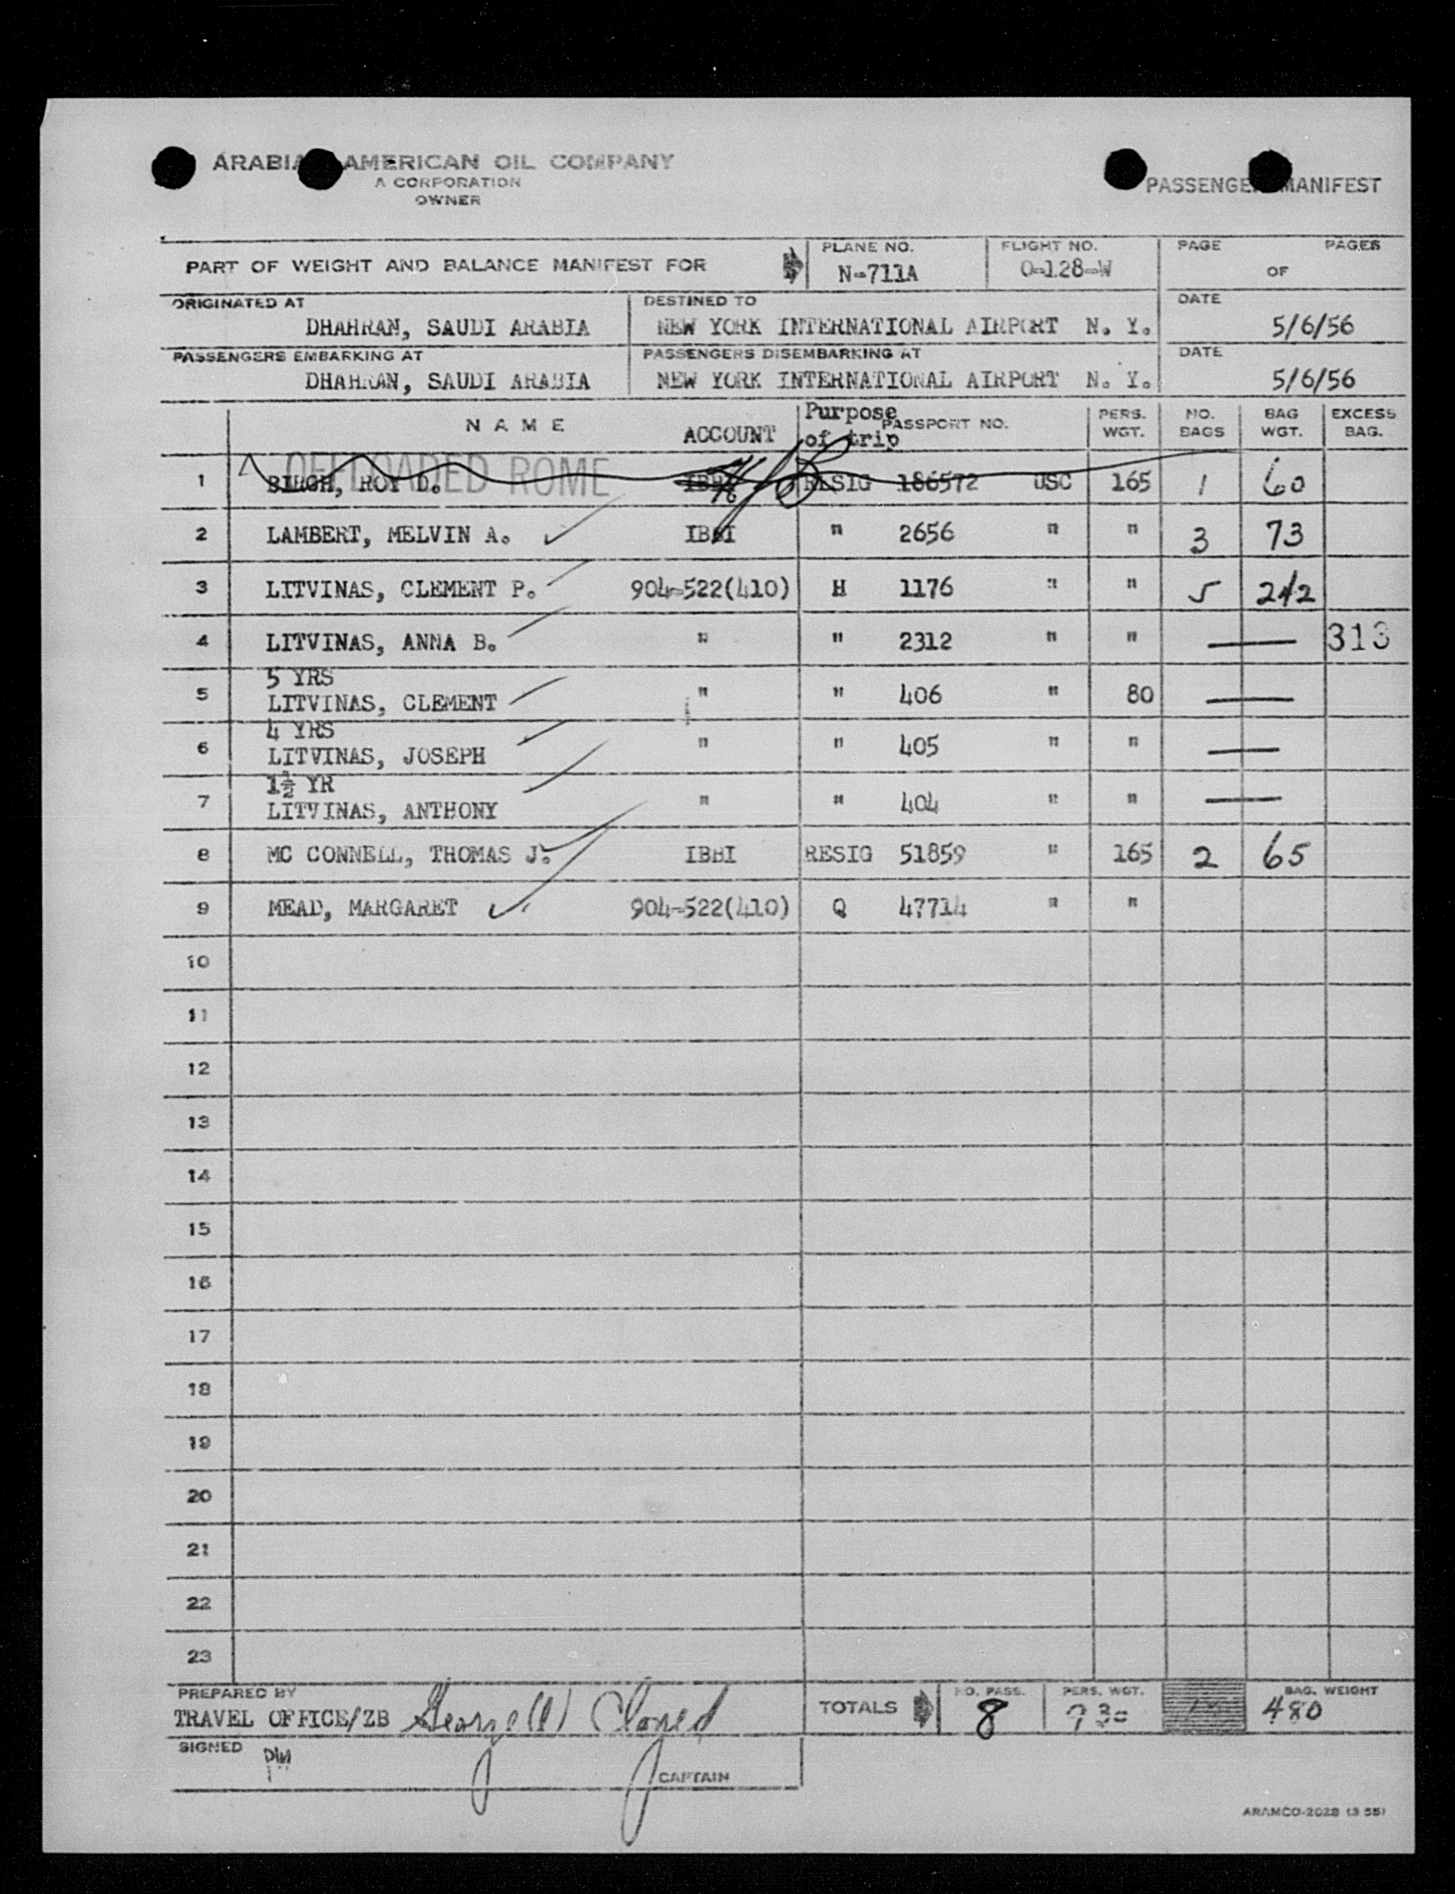 ARABIAN AMERICAN OIL COMPANY
A CORPORATION
OWNER
PASSENGER MANIFEST
PART OF WEIGHT AND BALANCE MANIFEST FOR
PLANE NO. N-711A
FLIGHT NO. O-128-W
PAGE OF PAGES
ORIGINATED AT DHAHRAN, SAUDI ARABIA
DESTINED TO NEW YORK INTERNATIONAL AIRPORT N. Y.
DATE 5/6/56
PASSENGERS EMBARKING AT DHAHRAN, SAUDI ARABIA
PASSENGERS DISEMBARKING AT NEW YORK INTERNATIONAL AIRPORT N. Y.
DATE 5/6/56
NAME ACCOUNT Purpose of trip PASSPORT NO. PERS. WGT. NO. BAGS BAG WGT. EXCESS BAG.
OFFLOADED ROME
1 BIRGH, ROY D. RESIG 186572 USC 165 1 60
2 LAMBERT, MELVIN A. IBBI " 2656 " " 3 73
3 LITVINAS, CLEMENT P. 904-522(410) H 1176 " " 5 242
4 LITVINAS, ANNA B. " " 2312 " " — 313
5 YRS
5 LITVINAS, CLEMENT " " 406 " 80 —
4 YRS
6 LITVINAS, JOSEPH " " 405 " " —
1½ YR
7 LITVINAS, ANTHONY " " 404 " " —
8 MC CONNELL, THOMAS J. IBBI RESIG 51859 " 165 2 65
9 MEAD, MARGARET 904-522(410) Q 47714 " "
10
11
12
13
14
15
16
17
18
19
20
21
22
23
PREPARED BY
TRAVEL OFFICE/ZB
TOTALS NO. PASS. 8 PERS. WGT. 930 BAG. WEIGHT 480
SIGNED
CAPTAIN
ARAMCO-2028 (3 55)